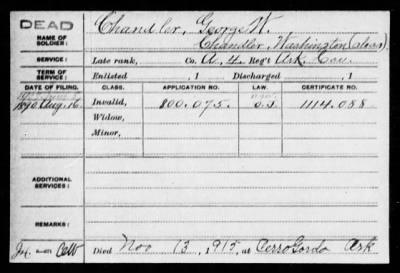 DEAD
NAME OF SOLDIER:
Chandler, George W.
Chandler, Washington (alias)
SERVICE:
Late rank, Co. A, 4, Reg't Ark. Cav.
TERM OF SERVICE:
Enlisted , 1 Discharged , 1
DATE OF FILING. CLASS. APPLICATION NO. LAW. CERTIFICATE NO.
1890 Aug. 16. Invalid, 800.075. 1114.088
Widow,
Minor,
ADDITIONAL SERVICES:
REMARKS:
Died Nov 13, 1915, at Cerro Gordo Ark